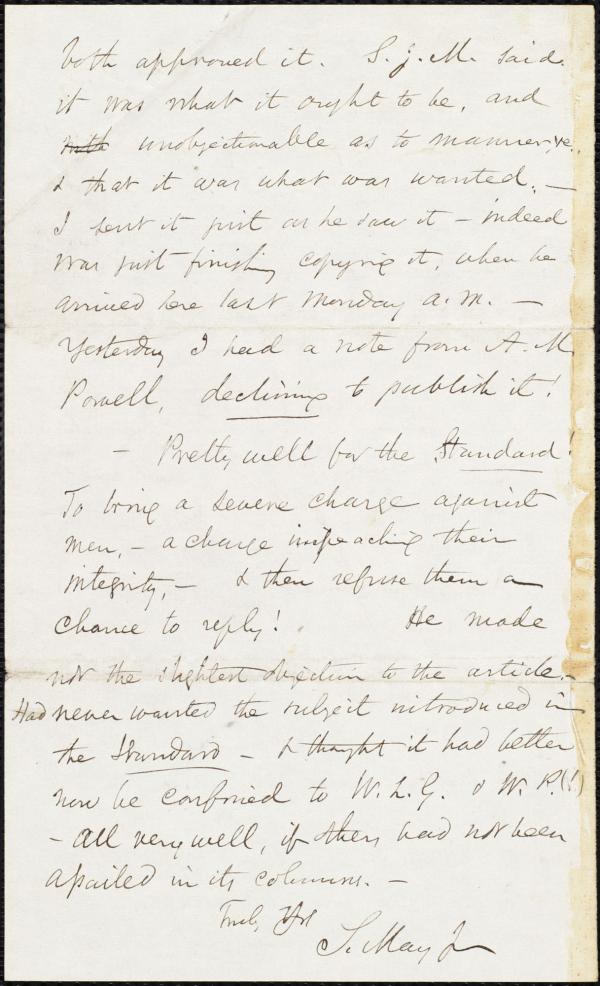 both approved it. S. J. M. said
it was what it ought to be, and
unobjectionable as to manner, &c.
& that it was what was wanted. —
I sent it just as he saw it — indeed
was just finishing copying it, when he
arrived here last Monday a.m. —
Yesterday I had a note from A. M.
Powell, declining to publish it!
— Pretty well for the Standard!
To bring a severe charge against
men, — a charge impeaching their
integrity, — & then refuse them a
chance to reply! He made
not the slightest objection to the article. —
Had never wanted the subject introduced in
the Standard — & thought it had better
now be confined to W. L. G. & W. P. (!)
— All very well, if others had not been
assailed in its columns. —
Truly Yrs
S. May Jr